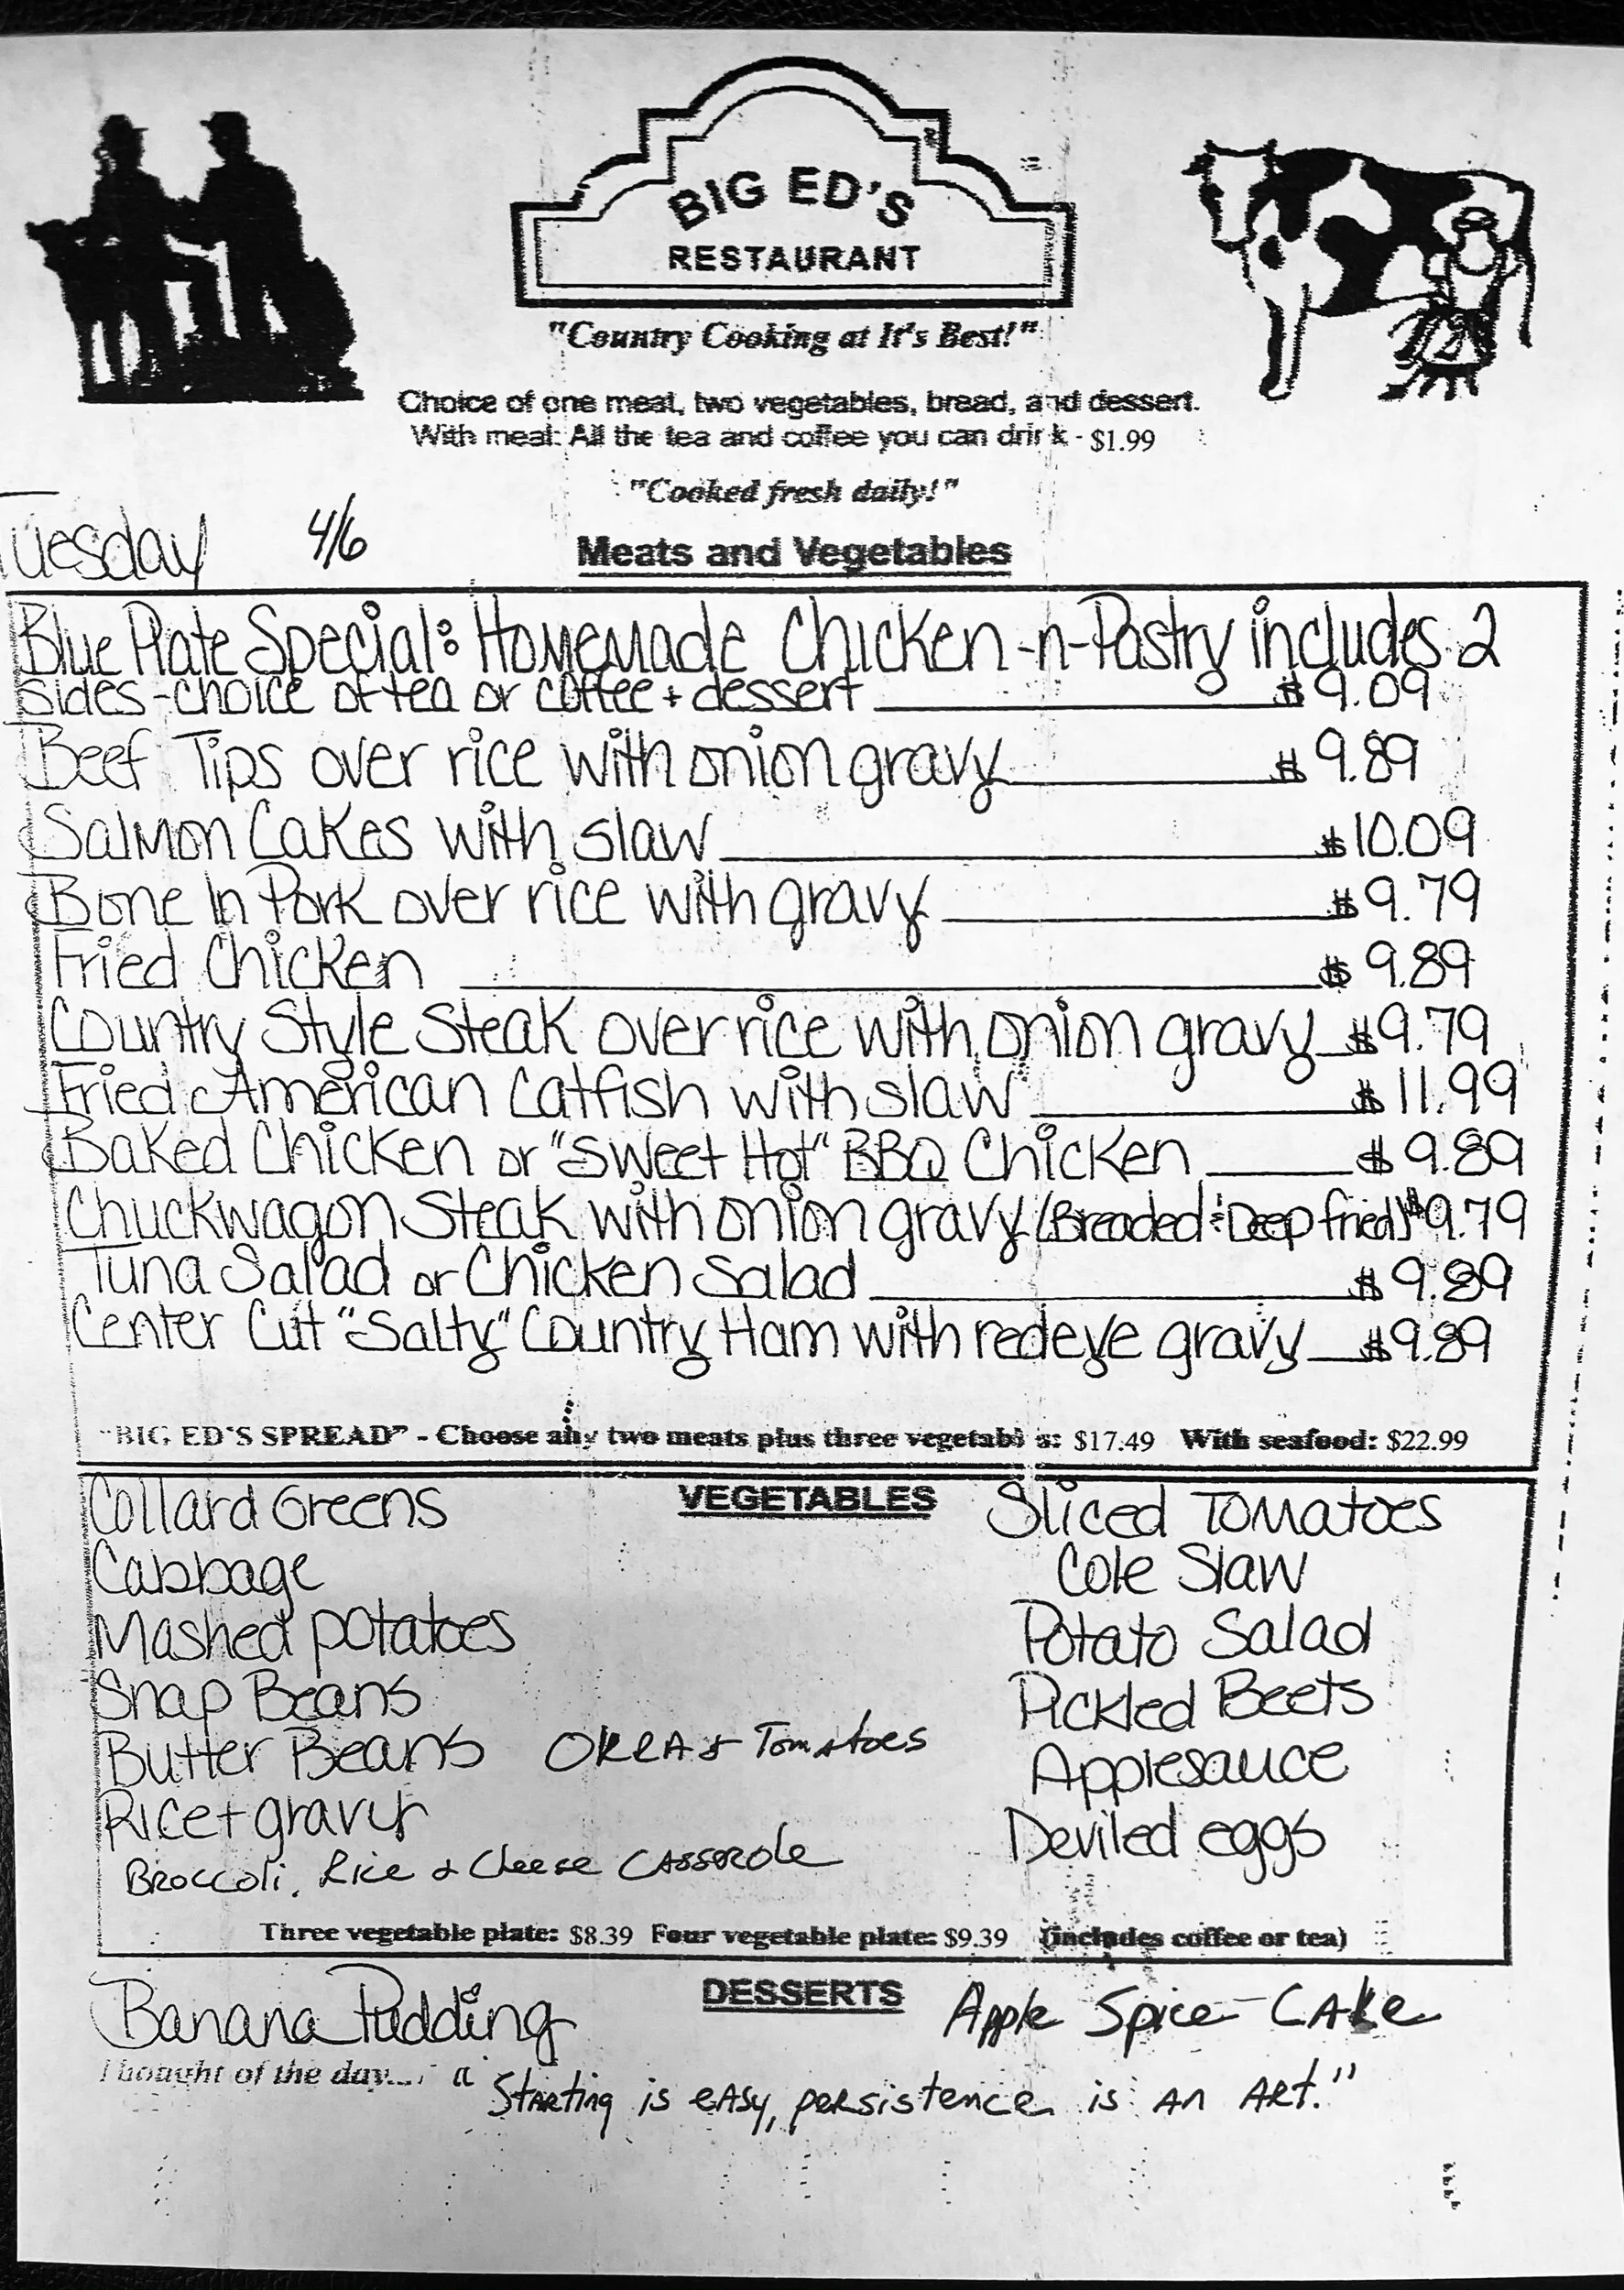 BIG ED'S
RESTAURANT
"Country Cooking at It's Best!"
Choice of one meat, two vegetables, bread, and dessert.
With meal: All the tea and coffee you can drink - $1.99
"Cooked fresh daily!"
Tuesday 4/6
Meats and Vegetables
Blue Plate Special: Homemade Chicken-n-Pastry includes 2
sides - choice of tea or coffee + dessert $9.09
Beef Tips over rice with onion gravy $9.89
Salmon Cakes with slaw $10.09
Bone In Pork over rice with gravy $9.79
Fried Chicken $9.89
Country Style Steak over rice with onion gravy $9.79
Fried American Catfish with slaw $11.99
Baked Chicken or "Sweet Hot" BBQ Chicken $9.89
Chuckwagon Steak with onion gravy (Breaded & Deep fried) $9.79
Tuna Salad or Chicken Salad $9.89
Center Cut "Salty" Country Ham with redeye gravy $9.89
"BIG ED'S SPREAD" - Choose any two meats plus three vegetables: $17.49 With seafood: $22.99
VEGETABLES
Collard Greens
Cabbage
Mashed potatoes
Snap Beans
Butter Beans
Rice + gravy
Broccoli, Rice & Cheese Casserole
OKRA & Tomatoes
Sliced Tomatoes
Cole Slaw
Potato Salad
Pickled Beets
Applesauce
Deviled eggs
Three vegetable plate: $8.39 Four vegetable plate: $9.39 (includes coffee or tea)
DESSERTS
Banana Pudding
Apple Spice Cake
Thought of the day... "Starting is easy, persistence is an art."